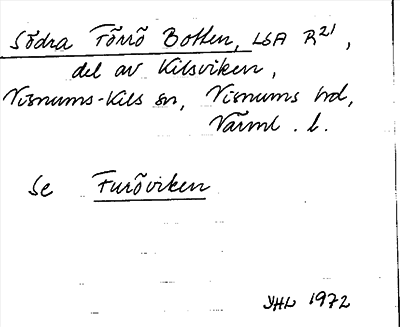 Södra Förrö Botten, LSA R²¹,
del av Kilsviken,
Visnums-Kils sn, Visnums hd,
Värml. l.
Se Furöviken
JHL 1972